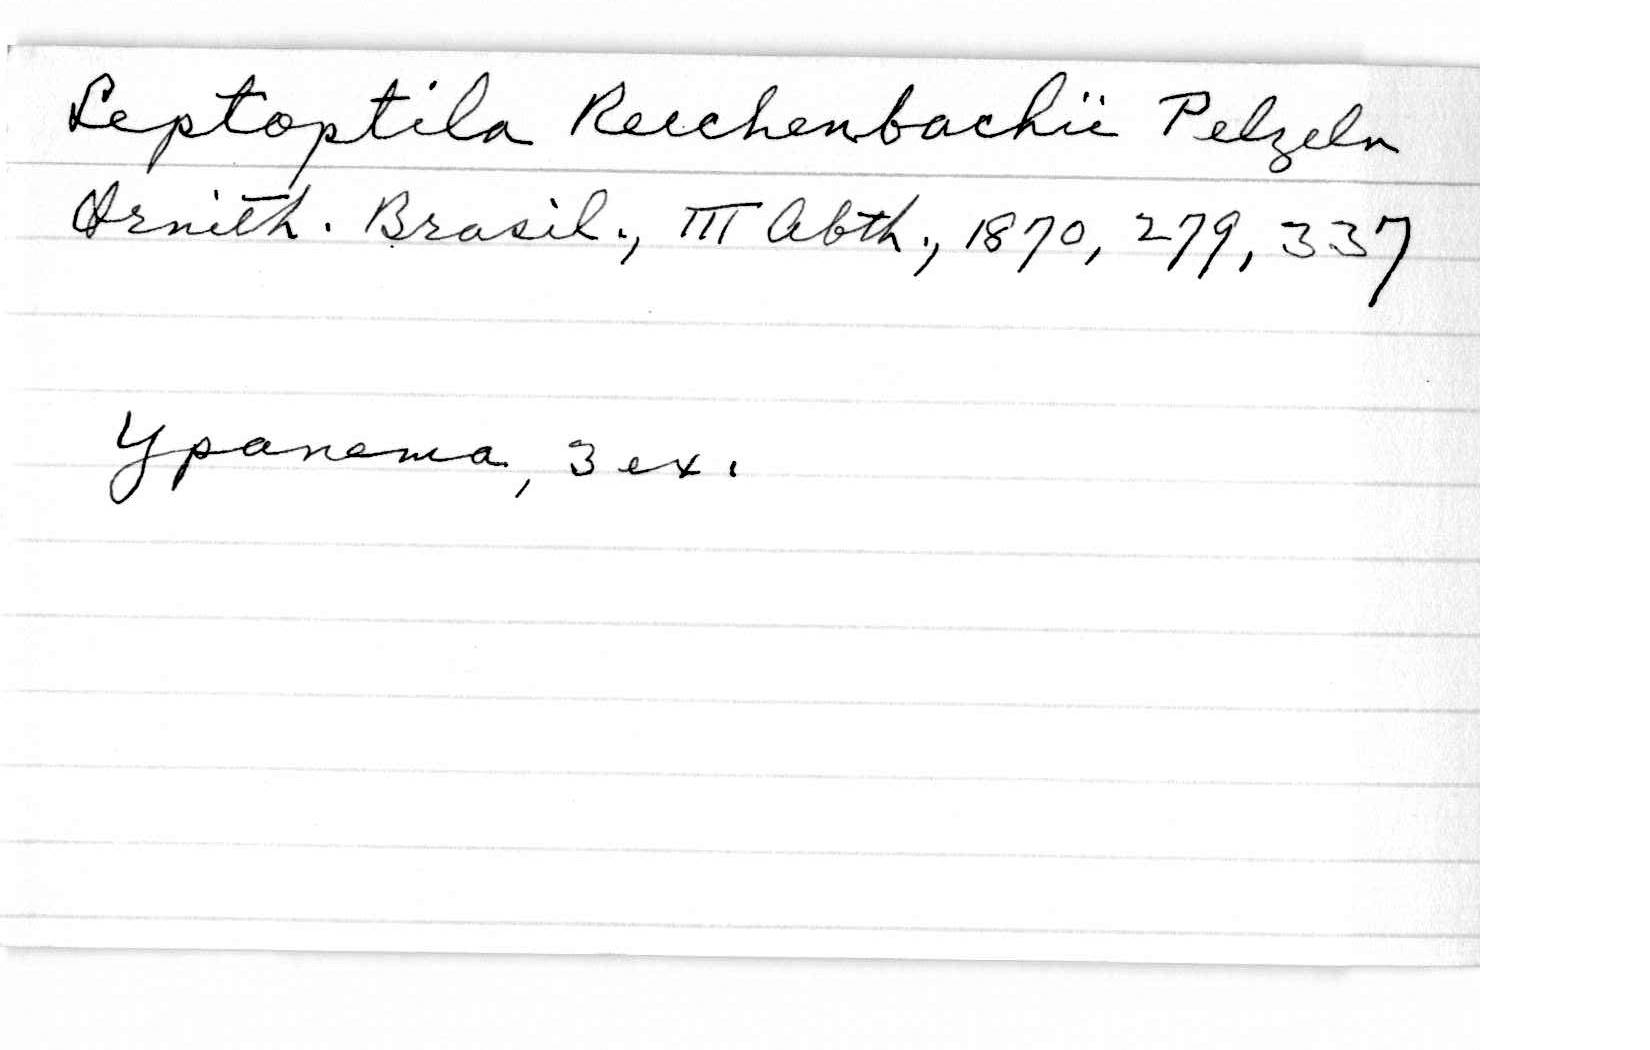 Leptoptila Reichenbachii Pelzeln
Ornith. Brasil., III Abth., 1870, 279, 337
Ypanema, 3 ex.